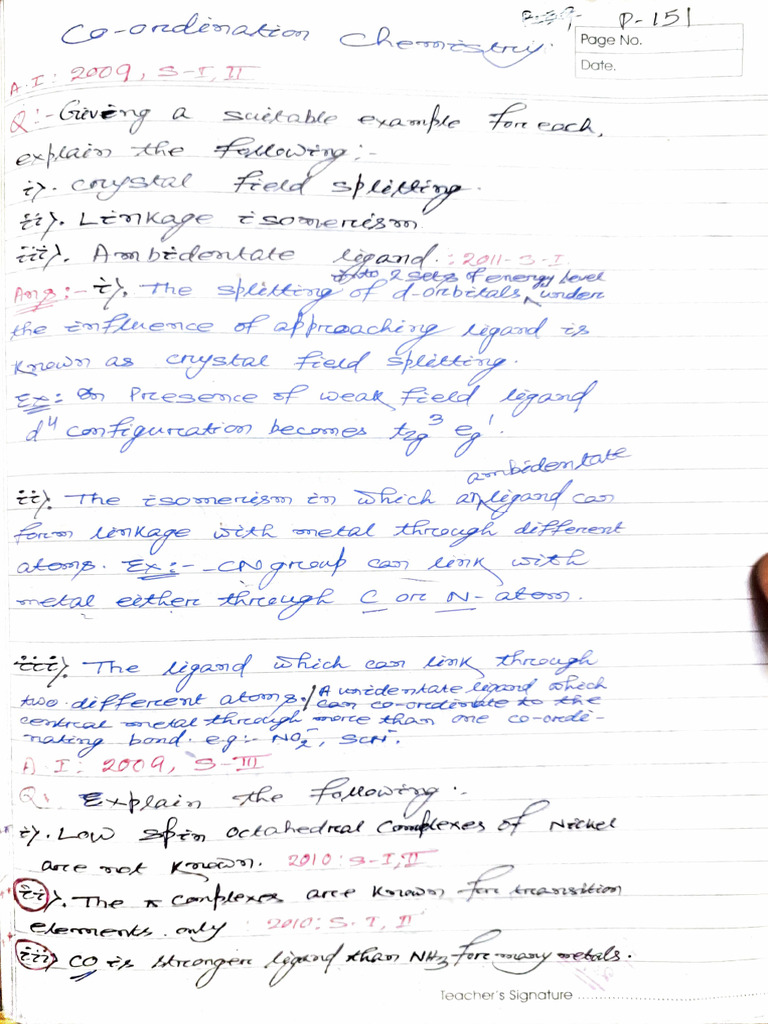 P-151
Co-ordination Chemistry.
Page No.
Date.
A.I: 2009, S-I, II
Q:- Giveing a suitable example for each,
explain the following:-
i). Crystal field splitting.
ii). Linkage isomerism
iii). Ambidentate ligand. : 2011- S-I
into 2 sets of energy level
Ans:- i). The splitting of d-orbitals ^ under
the influence of approaching ligand is
known as crystal field splitting.
Ex: In Presence of weak field ligand
d⁴ configuration becomes t₂g³ eg¹.
ambidentate
ii). The isomerism in which an ligand can
form linkage with metal through different
atoms. Ex:- -CN group can link with
metal either through C or N- atom.
iii). The ligand which can link through
two different atoms. / A unidentate ligand which
can co-ordinate to the
central metal through more than one co-ordi-
nating bond. eg:- NO₂⁻, SCN⁻.
A.I: 2009, S-III
Q: Explain the following:-
i). Low spin octahedral complexes of Nickel
are not known. 2010: S-I, II
ii). The π complexes are known for transition
elements only : 2010: S-I, II
iii) CO is stronger ligand than NH₃ for many metals.
Teacher's Signature